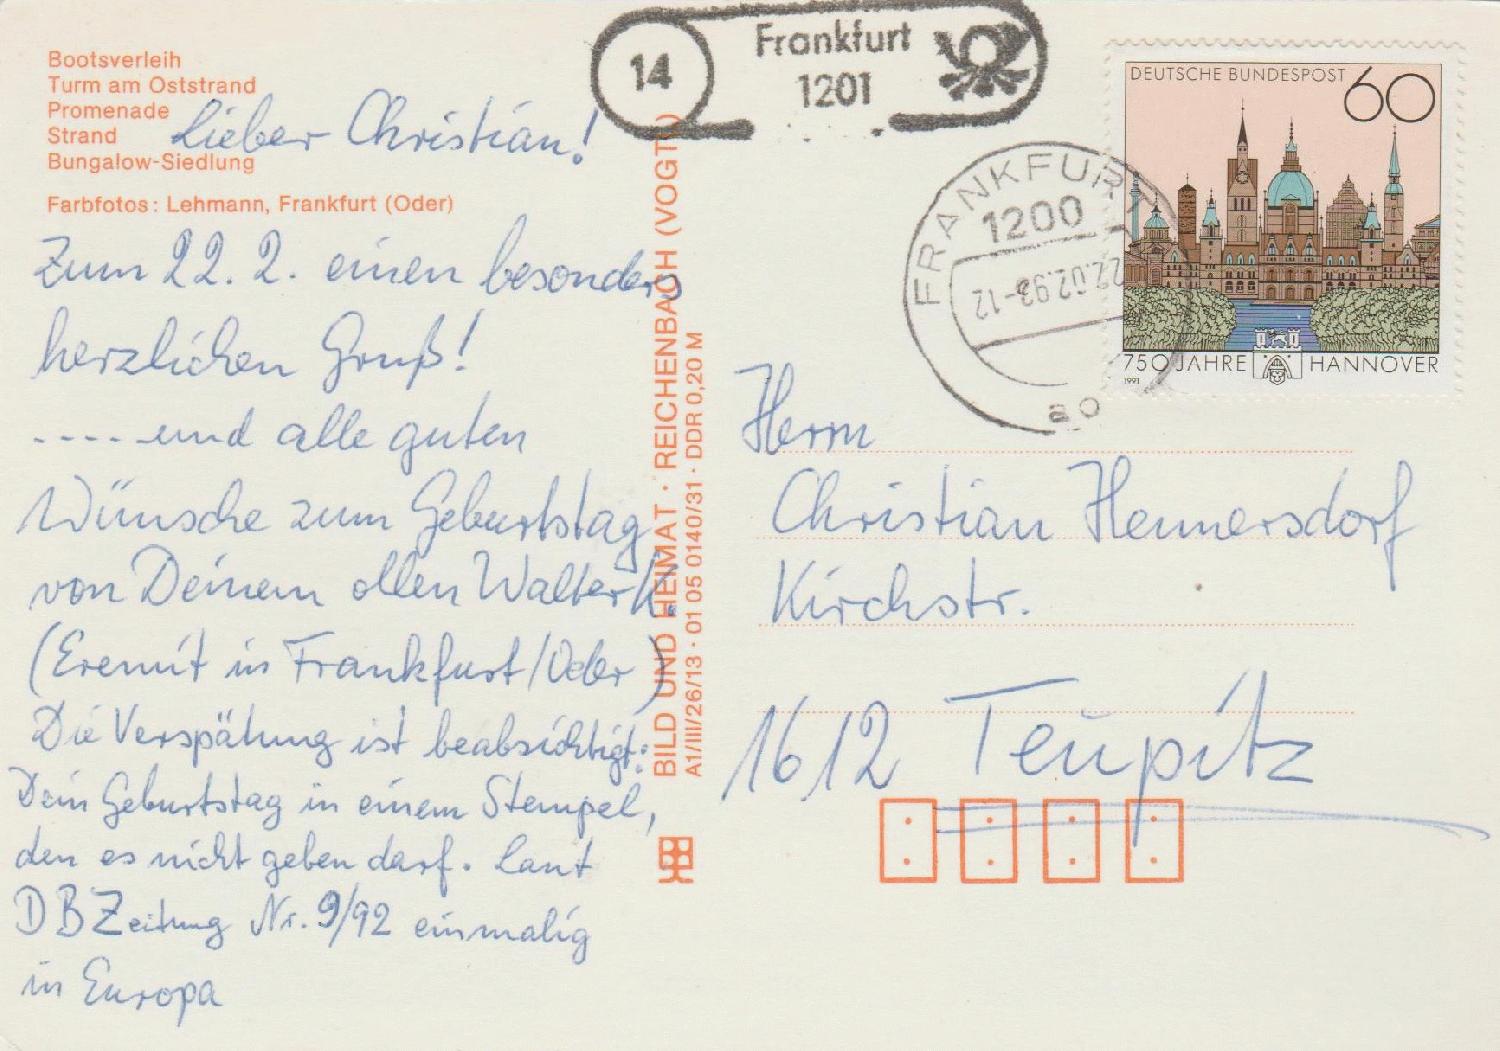 Bootsverleih
Turm am Oststrand
Promenade
Strand
Bungalow-Siedlung
Farbfotos: Lehmann, Frankfurt (Oder)
Lieber Christian!
Zum 22. 2. einen besonders
herzlichen Gruß!
.... und alle guten
Wünsche zum Geburtstag
von Deinem ollen Walter K.
(Eremit in Frankfurt/Oder)
Die Verspätung ist beabsichtigt:
Dein Geburtstag in einem Stempel,
den es nicht geben darf. Laut
DBZeitung Nr. 9/92 einmalig
in Europa
BILD UND HEIMAT · REICHENBACH (VOGTL)
A1/III/26/13 · 01 05 0140/31 · DDR 0,20 M
14
Frankfurt
1201
FRANKFURT
1200
22.02.92-12
ao
DEUTSCHE BUNDESPOST 60
750 JAHRE HANNOVER
1991
Herrn
Christian Hennersdorf
Kirchstr.
1612 Teupitz